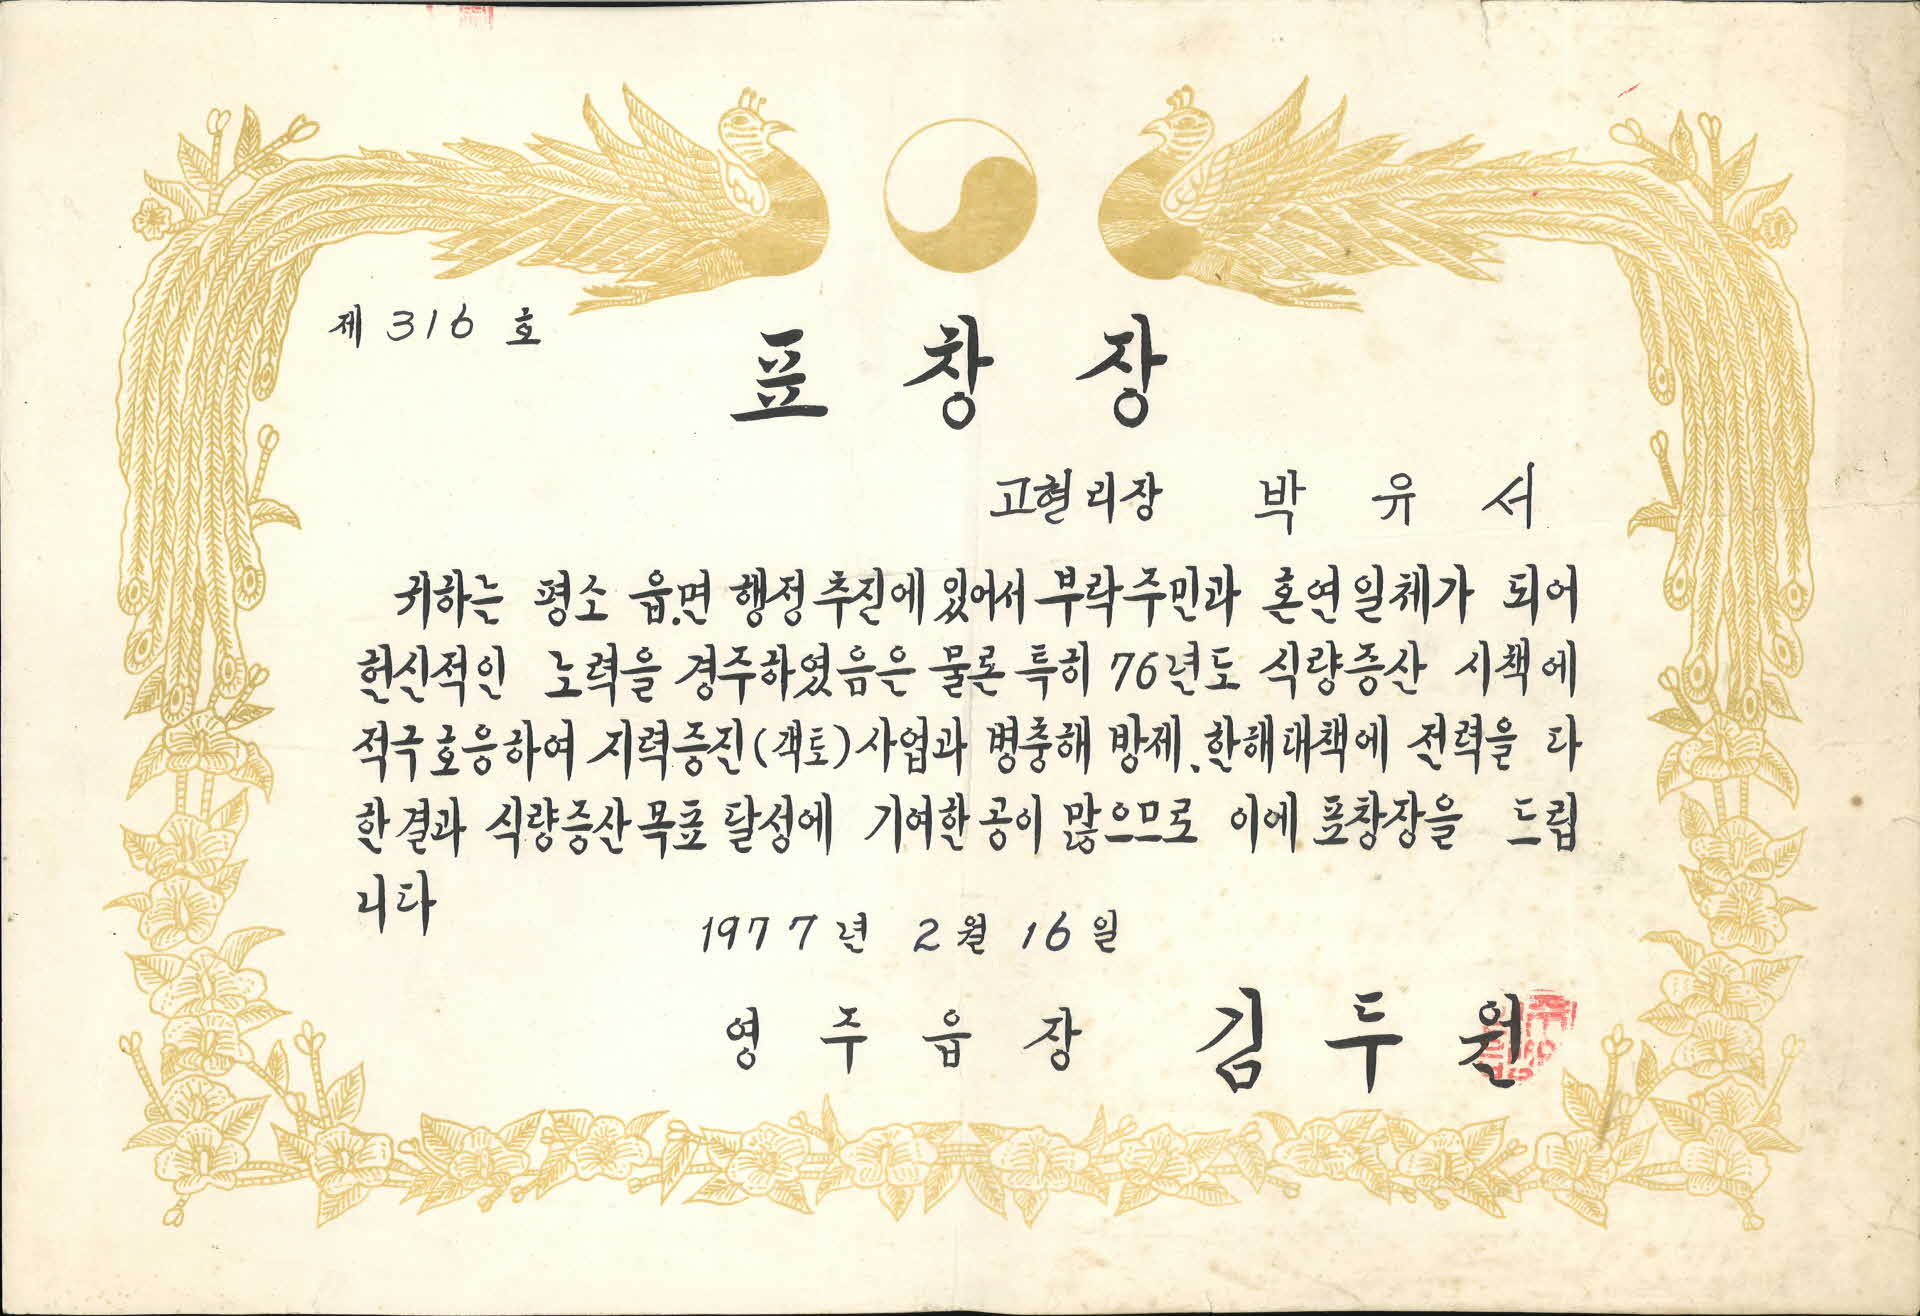 제 316 호
표 창 장
고현리장 박 유 서
귀하는 평소 읍.면 행정추진에 있어서 부락주민과 혼연일체가 되어
헌신적인 노력을 경주하였음은 물론 특히 76년도 식량증산 시책에
적극호응하여 지력증진(객토)사업과 병충해 방제.한해대책에 전력을 다
한결과 식량증산목표달성에 기여한공이 많으므로 이에 표창장을 드립
니다
1977년 2월 16일
영 주 읍 장 김 두 원